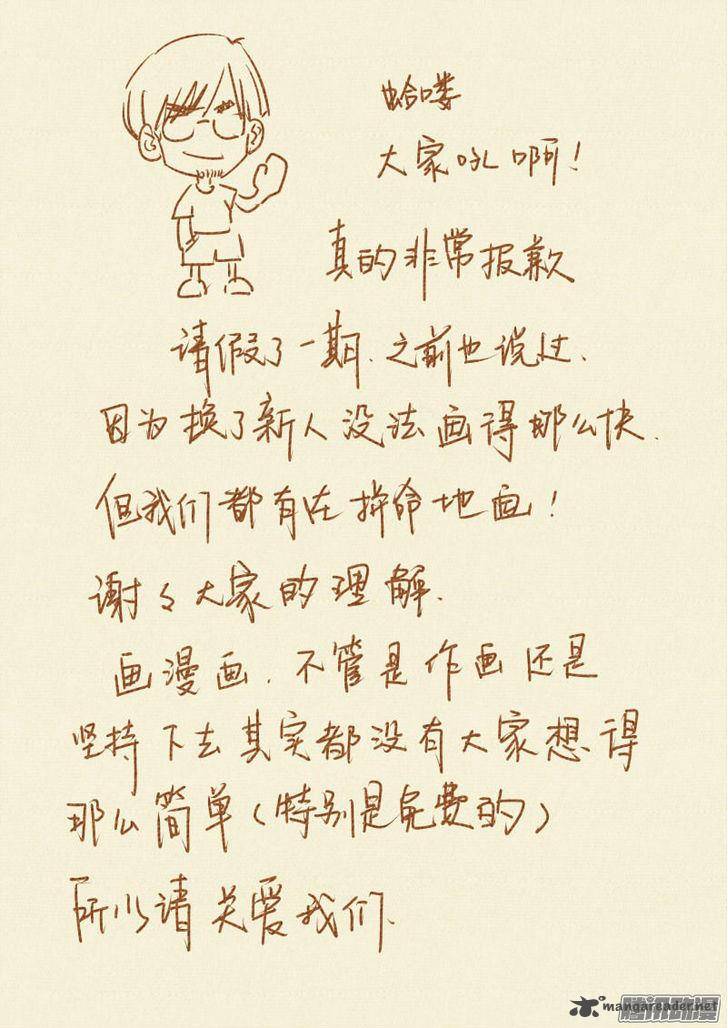 蛤喽
大家吼啊！
真的非常报歉
请假了一期.之前也说过.
因为换了新人没法画得那么快.
但我们都有在拼命地画！
谢々大家的理解.
画漫画.不管是作画还是
坚持下去其实都没有大家想得
那么简单(特别是免费的)
所以请关爱我们.
mangareader.net
腾讯动漫